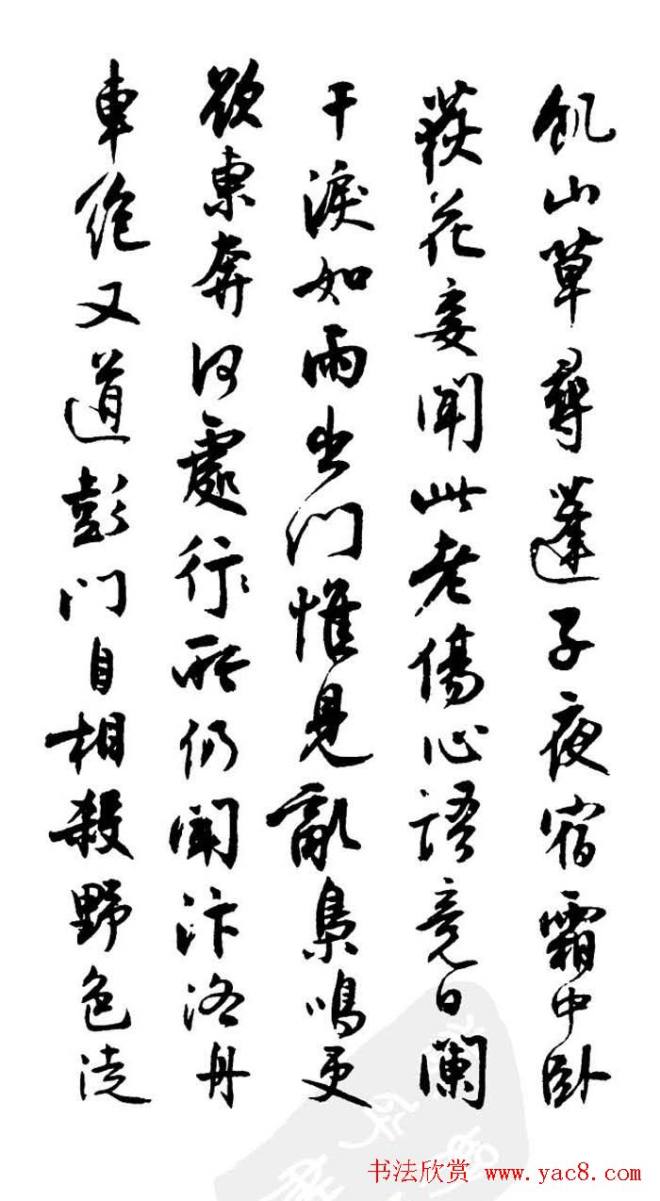 飢山草尋蓬子夜宿霜中臥
荻花妾聞此老傷心語竟日闌
干淚如雨出門惟見亂梟鳴更
欲東奔何處行所仍聞汴洛舟
車絶又道彭門自相殺野色徒
书法欣赏 www.yac8.com